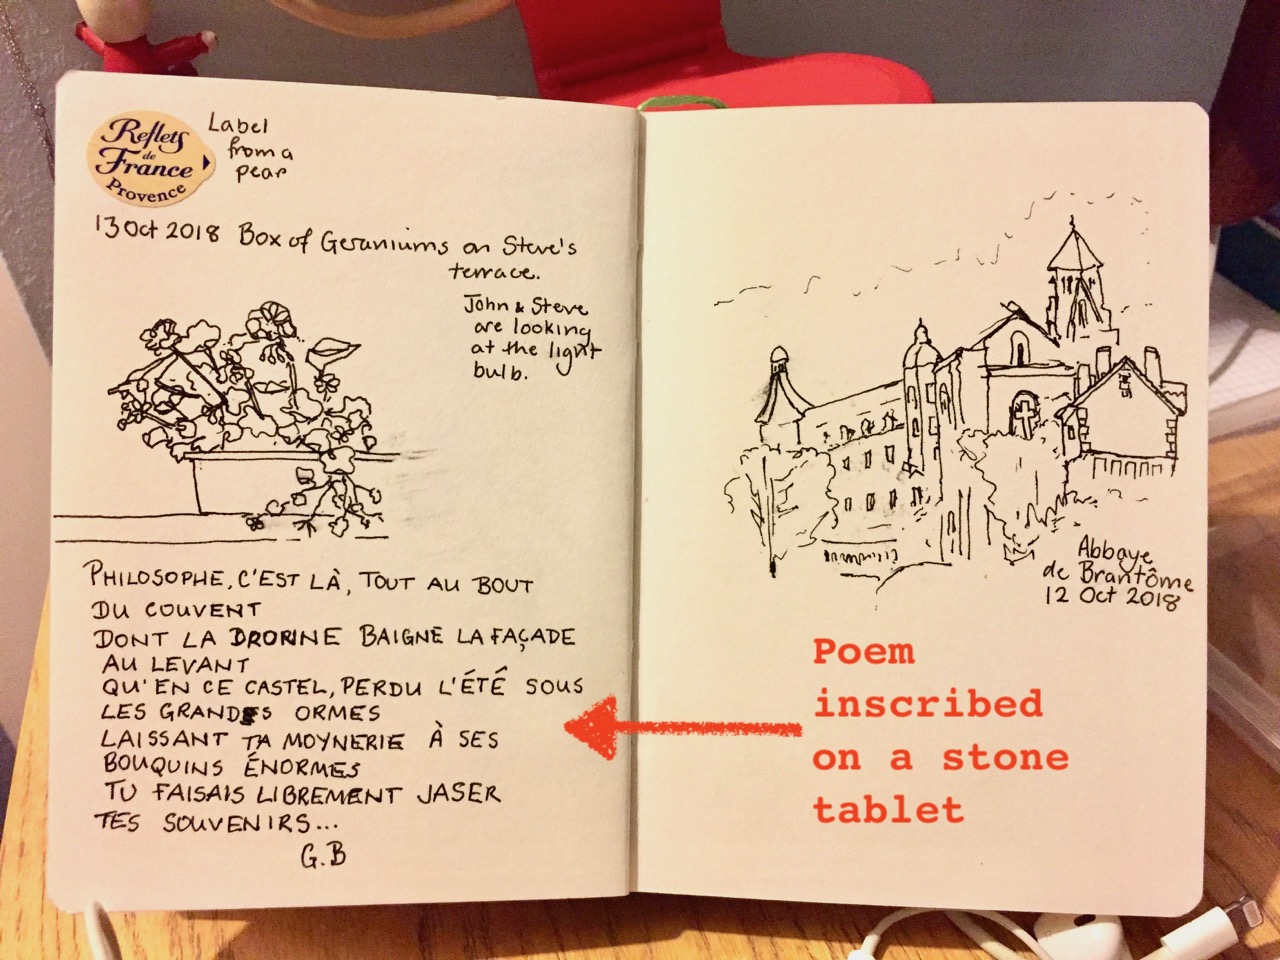 Reflets
de
France
Provence
Label
from a
pear
13 Oct 2018 Box of Geraniums on Steve's
terrace.
John & Steve
are looking
at the light
bulb.
PHILOSOPHE, C'EST LÀ, TOUT AU BOUT
DU COUVENT
DONT LA DRORINE BAIGNE LA FAÇADE
AU LEVANT
QU'EN CE CASTEL, PERDU L'ÉTÉ SOUS
LES GRANDES ORMES
LAISSANT TA MOYNERIE À SES
BOUQUINS ÉNORMES
TU FAISAIS LIBREMENT JASER
TES SOUVENIRS...
G.B
Abbaye
de Brantôme
12 Oct 2018
Poem
inscribed
on a stone
tablet